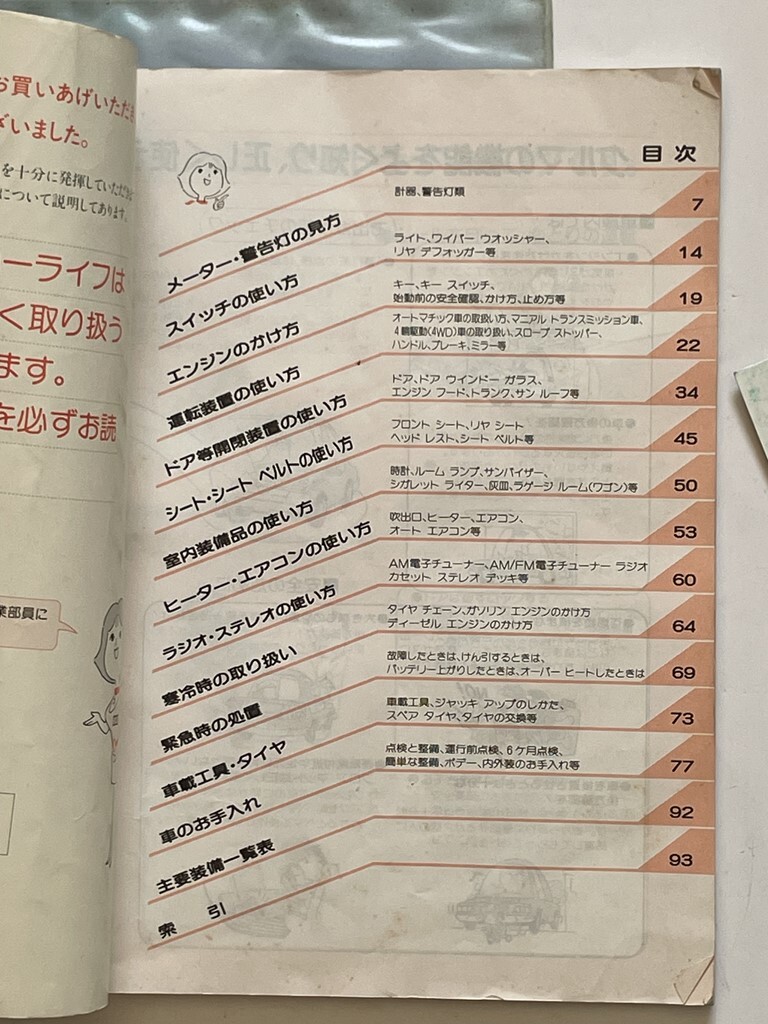 お買いあげいただき
ざいました。
を十分に発揮していただ
について説明してあります。
ーライフは
く取り扱う
ます。
を必ずお読
業部員に
目次
メーター・警告灯の見方
計器、警告灯類
7
スイッチの使い方
ライト、ワイパー ウオッシャー、
リヤ デフォッガー等
14
エンジンのかけ方
キー、キー スイッチ、
始動前の安全確認、かけ方、止め方等
19
運転装置の使い方
オートマチック車の取扱い方、マニアル トランスミッション車、
4輪駆動(4WD)車の取り扱い、スロープ ストッパー、
ハンドル、ブレーキ、ミラー等
22
ドア等開閉装置の使い方
ドア、ドア ウインドー ガラス、
エンジン フード、トランク、サン ルーフ等
34
シート・シート ベルトの使い方
フロント シート、リヤ シート
ヘッド レスト、シート ベルト等
45
室内装備品の使い方
時計、ルーム ランプ、サンバイザー、
シガレット ライター、灰皿、ラゲージ ルーム(ワゴン)等
50
ヒーター・エアコンの使い方
吹出口、ヒーター、エアコン、
オート エアコン等
53
ラジオ・ステレオの使い方
AM電子チューナー、AM/FM電子チューナー ラジオ
カセット ステレオ デッキ等
60
寒冷時の取り扱い
タイヤ チェーン、ガソリン エンジンのかけ方
ディーゼル エンジンのかけ方
64
緊急時の処置
故障したときは、けん引するときは、
バッテリー上がりしたときは、オーバー ヒートしたときは
69
車載工具・タイヤ
車載工具、ジャッキ アップのしかた、
スペア タイヤ、タイヤの交換等
73
車のお手入れ
点検と整備、運行前点検、6ケ月点検、
簡単な整備、ボデー、内外装のお手入れ等
77
主要装備一覧表
92
索 引
93